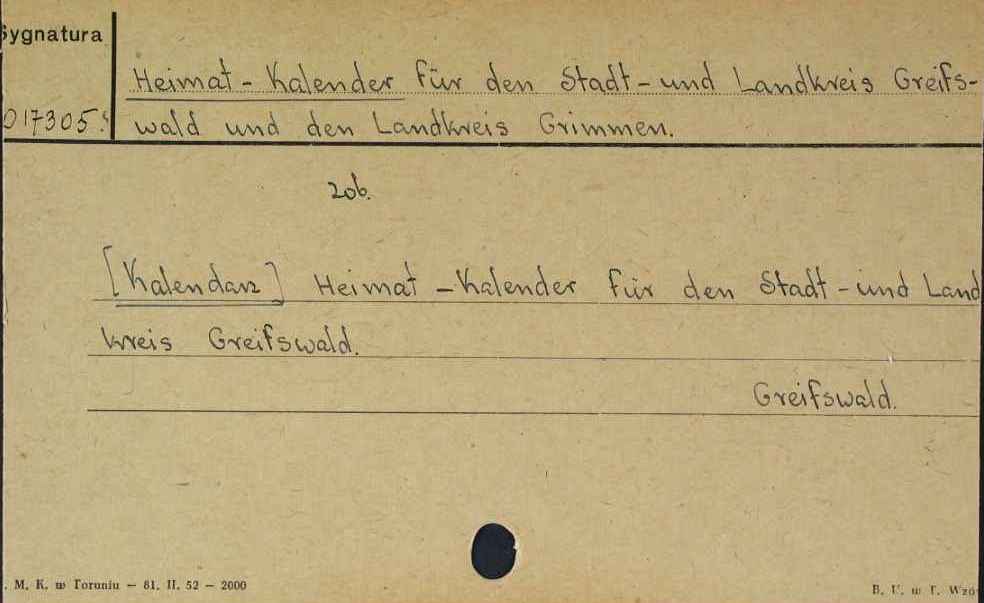 Sygnatura
Heimat-Kalender für den Stadt-und Landkreis Greifs-
017305
wald und den Landkreis Grimmen.
zob.
[Kalendarz] Heimat-Kalender für den Stadt-und Land
kreis Greifswald.
Greifswald.
. M. K. w Toruniu — 81. II. 52 — 2000
B. U. w T. Wzó